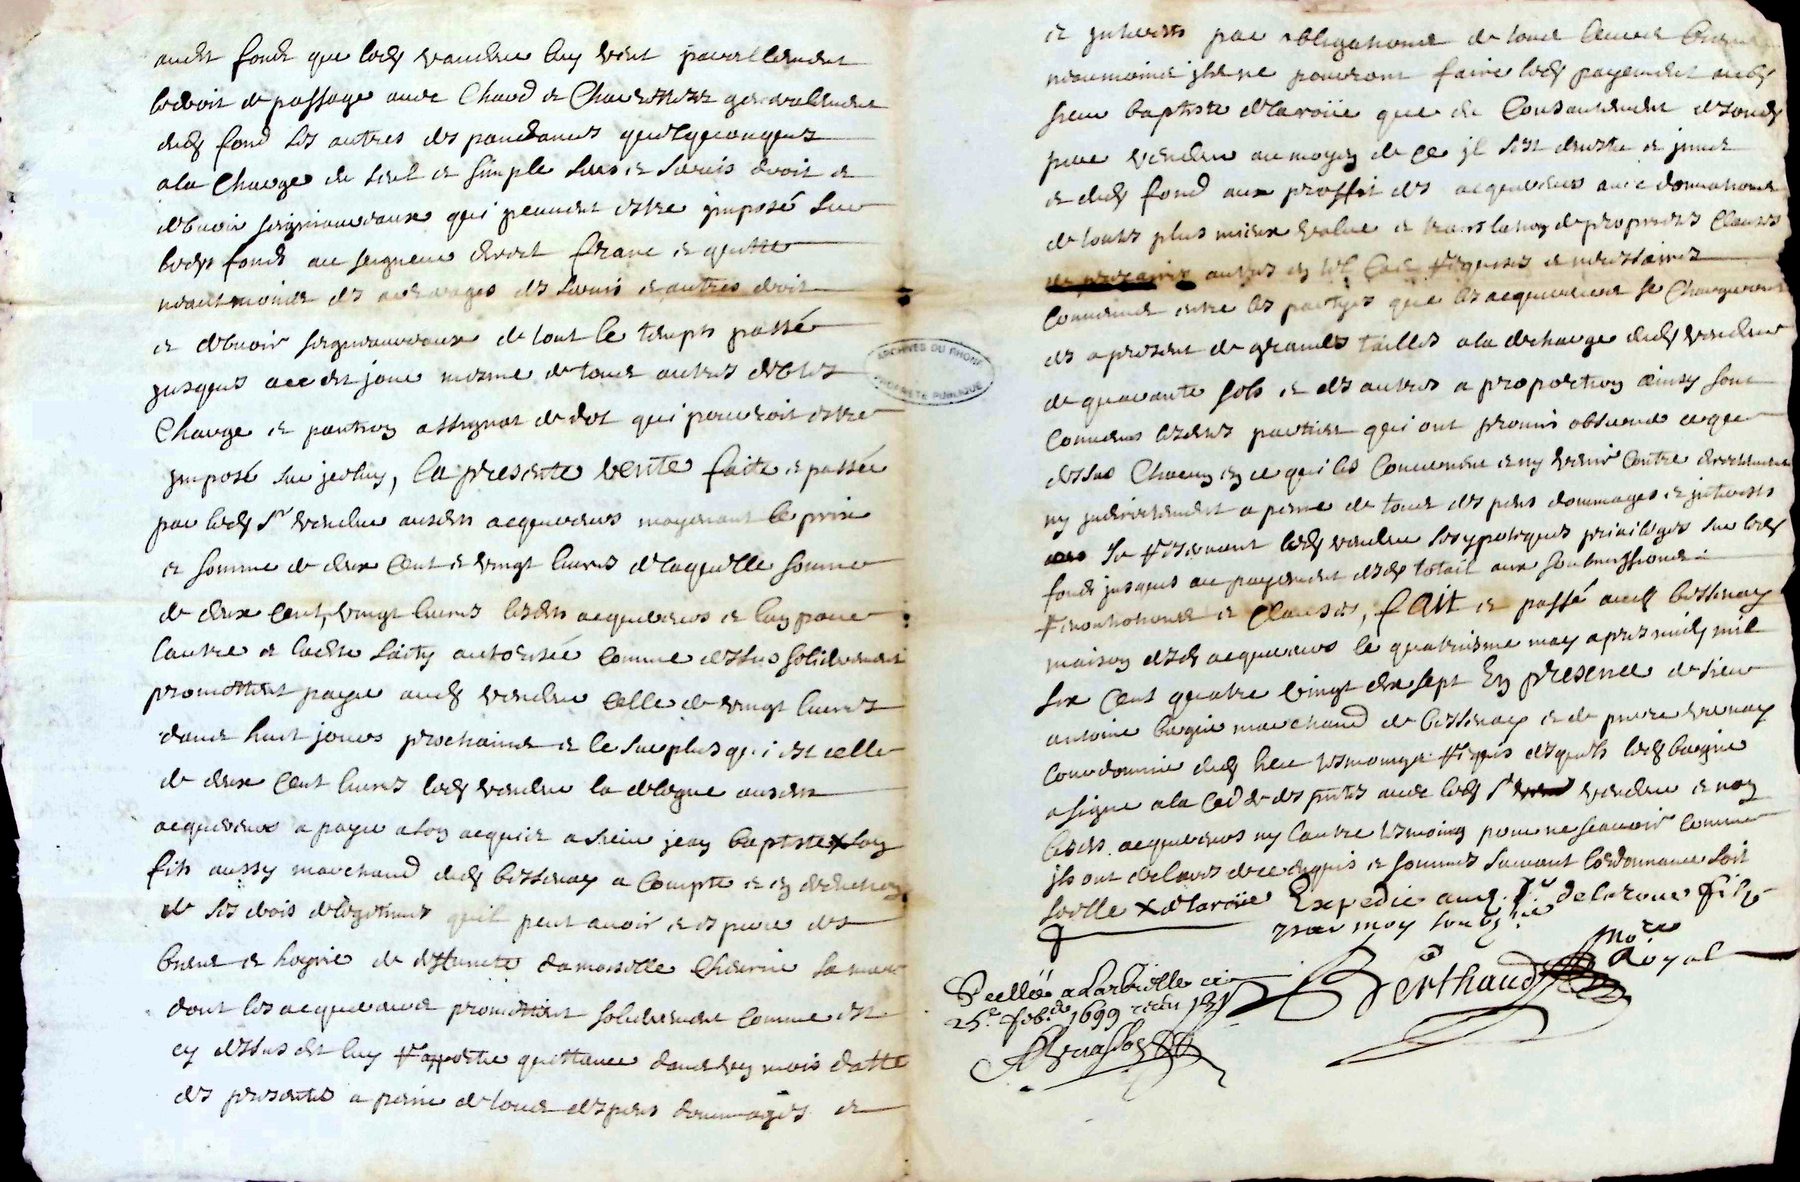 audit fond que ledit vendeur luy vent pareillement
le droit de passage avec Chard et Charettes generallement
dudit fond ses autres dependances quelqueonques
a la Charge du seul et simple sens et servis droit et
debvoir seigniauraux qui peuvent estre imposé sur
ledit fond au seigneur direct franc et quitte
neantmoins des arrerages des servis et autres droit
et debvoir seigneuriaux de tout le temps passé
jusques a ce dit jour mesme de tous autres debtes
Charge et pantion assignat de dot qui pourroit estre
imposé sur jcelluy, la presente vente faite et passée
par ledit Sr vendeur ausdits acquereurs moyenant le prix
et somme de deux Cent et vingt livres de laquelle somme
de deux Cent vingt livres lesdits acquereurs et lun pour
lautre et ladite autorisée comme dessus solidairement
promettent payer audit vendeur Celle de vingt livres
dans huit jours prochains et le surplus qui est celle
de deux Cent livres ledit vendeur la delegue ausdits
acquereurs a payer a son acquit a sieur jean baptiste x son
fils aussy marchand dudit bessenay a Compte et en deduction
de ses drois qu'il peut avoir et espere des
biens et hoyrie de deffuncte damoiselle sa mere
dont les acquereurs promettent solidairement comme est
cy dessus dit luy rapporter quittance dans un mois datte
des presentes a peine de tous despens dommages et
et jnterets par obligations de tous leurs biens
neanmoins jls ne pourront faire ledit payement audit
sieur baptiste delaroüe que du Consantement de sondit
pere vendeur au moyen de ce jl sest devestu et jnvest
et dudit fond aux proffit des acquereurs avec donnations
de toutes plus mieux value et translation de proprietes Clauses
de precaire autres en tel Cas requises et necessaires
Convenu entre les partyes que les acquereurs se Chargeront
des a present de grandes tailles a la decharge dudit vendeur
de quarante sols et des autres a proportion ainsy sont
Convenus lesdites parties qui ont promis observer ce que
dessus Chacun en ce qui les Concerne et ny venir Contre directement
ny jndirectement a peine de tous despens dommages et jnterests
se reservant ledit vendeur ses ypoteques privileges sur ledit
fond jusques au payement desdit totail aux soubmissions
renontiations et Clauses, fait et passé audit bessenay
maison desdits acquereurs le quatriesme may apres midy mil
six Cent quatre vingt dix sept En presence de sieur
antoine marchand de bessenay et de pierre
Courdonnier dudit lieu tesmoings requis desquels ledit
a signe a la Cedde des ptes avec ledit Sr vendeur et non
lesdits acquereurs ny lautre tesmoing pour ne scavoir comme
jls ont declares de ce enquis et sommes suivant lordonnance soit
scellé x delaroüe Expedié aud. Sr delaroue fils
par moy soubsné
nore
Royal
Berthaud
Scellé a Larbrelle ce
25e feb. 1699
ARCHIVES DU RHONE
PROPRIÉTÉ PUBLIQUE